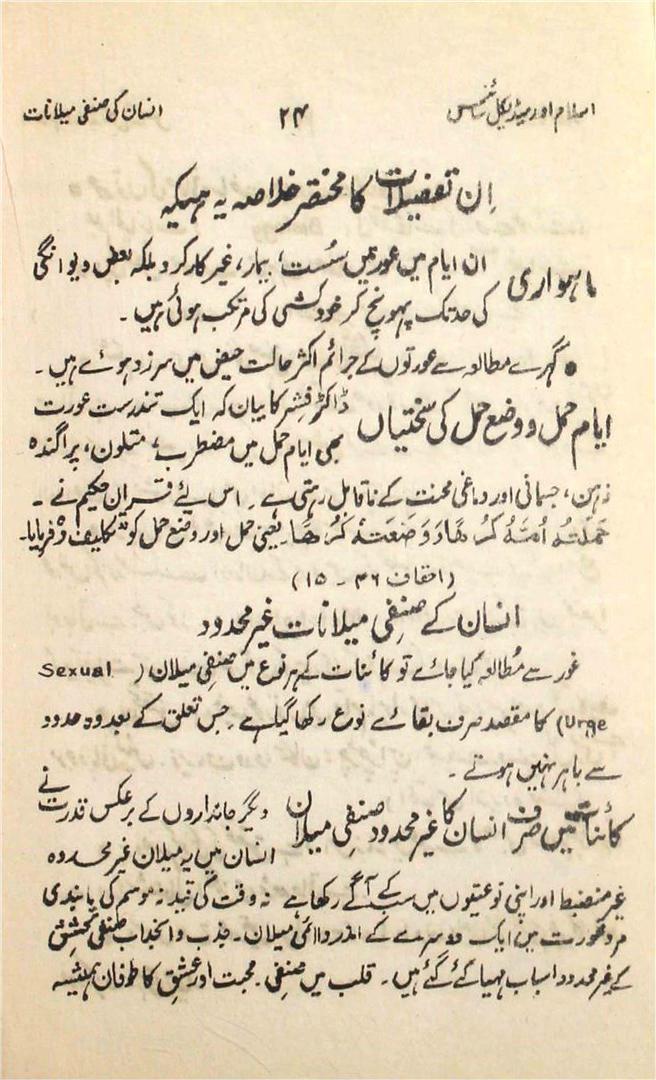 اسلام اور میڈیکل سائنس ۲۴ انسان کی صنفی میلانات
اِن تفصیلات کا مختصر خلاصہ یہ ہیکہ
ماہواری ان ایام میں عورتیں سُست، بیمار، غیر کارکرد بلکہ بعض دیوانگی
کی حد تک پہونچ کر خودکشی کی مرتکب ہوئی ہیں۔
● گہرے مطالعہ سے عورتوں کے جرائم اکثر حالت حیض میں سرزد ہوئے ہیں۔
ایام حمل و وضع حمل کی سختیاں ڈاکٹر فشر کا بیان کہ ایک تندرست عورت
بھی ایام حمل میں مضطرب، متلون، پراگندہ
ذہن، جسمانی اور دماغی محنت کے ناقابل رہتی ہے۔ اس لئے قرآن حکیم نے۔
حَمَلَتْهُ اُمُّهُ كُرْهًا وَّوَضَعَتْهُ كُرْهًا۔ یعنی حمل اور وضع حمل کو "تکلیف دہ" فرمایا۔
(احقاف ۴۶ - ۱۵)
انسان کے صنفی میلانات غیر محدود
غور سے مُطالعہ کیا جائے تو کائنات کے ہر نوع میں صنفی میلان (Sexual
Urge) کا مقصد صرف بقائے نوع رکھا گیا ہے۔ جس تعلق کے بعد وہ حدود
سے باہر نہیں ہوتے۔
کائنات میں صرف انسان کا غیر محدود صنفی میلان دیگر جانداروں کے برعکس قدرت نے
انسان میں یہ میلان غیر محدود
غیر منضبط اور اپنی نوعیتوں میں سب کے آگے رکھا ہے نہ وقت کی قید نہ موسم کی پابندی
مرد عورت میں ایک دوسرے کے اندر دائمی میلان۔ جذب و انجذاب صنفی تحشق
کے غیر محدود اسباب مہیا کئے گئے ہیں۔ قلب میں صنفی۔ محبت اور عشق کا طوفان ہمیشہ